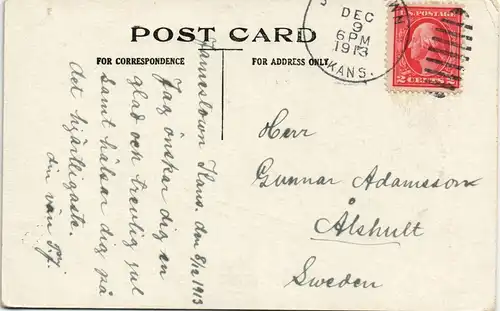 POST CARD
FOR CORRESPONDENCE
FOR ADDRESS ONLY
DEC
9
6 PM
1913
KANS.
U.S. POSTAGE
2 CENTS 2
Jamestown Kans. den 8/12 1913
Jag önskar dig en
glad och trevlig jul
samt hälsar dig på
det hjärtligaste.
din vän
Herr
Gunnar Adamsson
Ålshult
Sweden